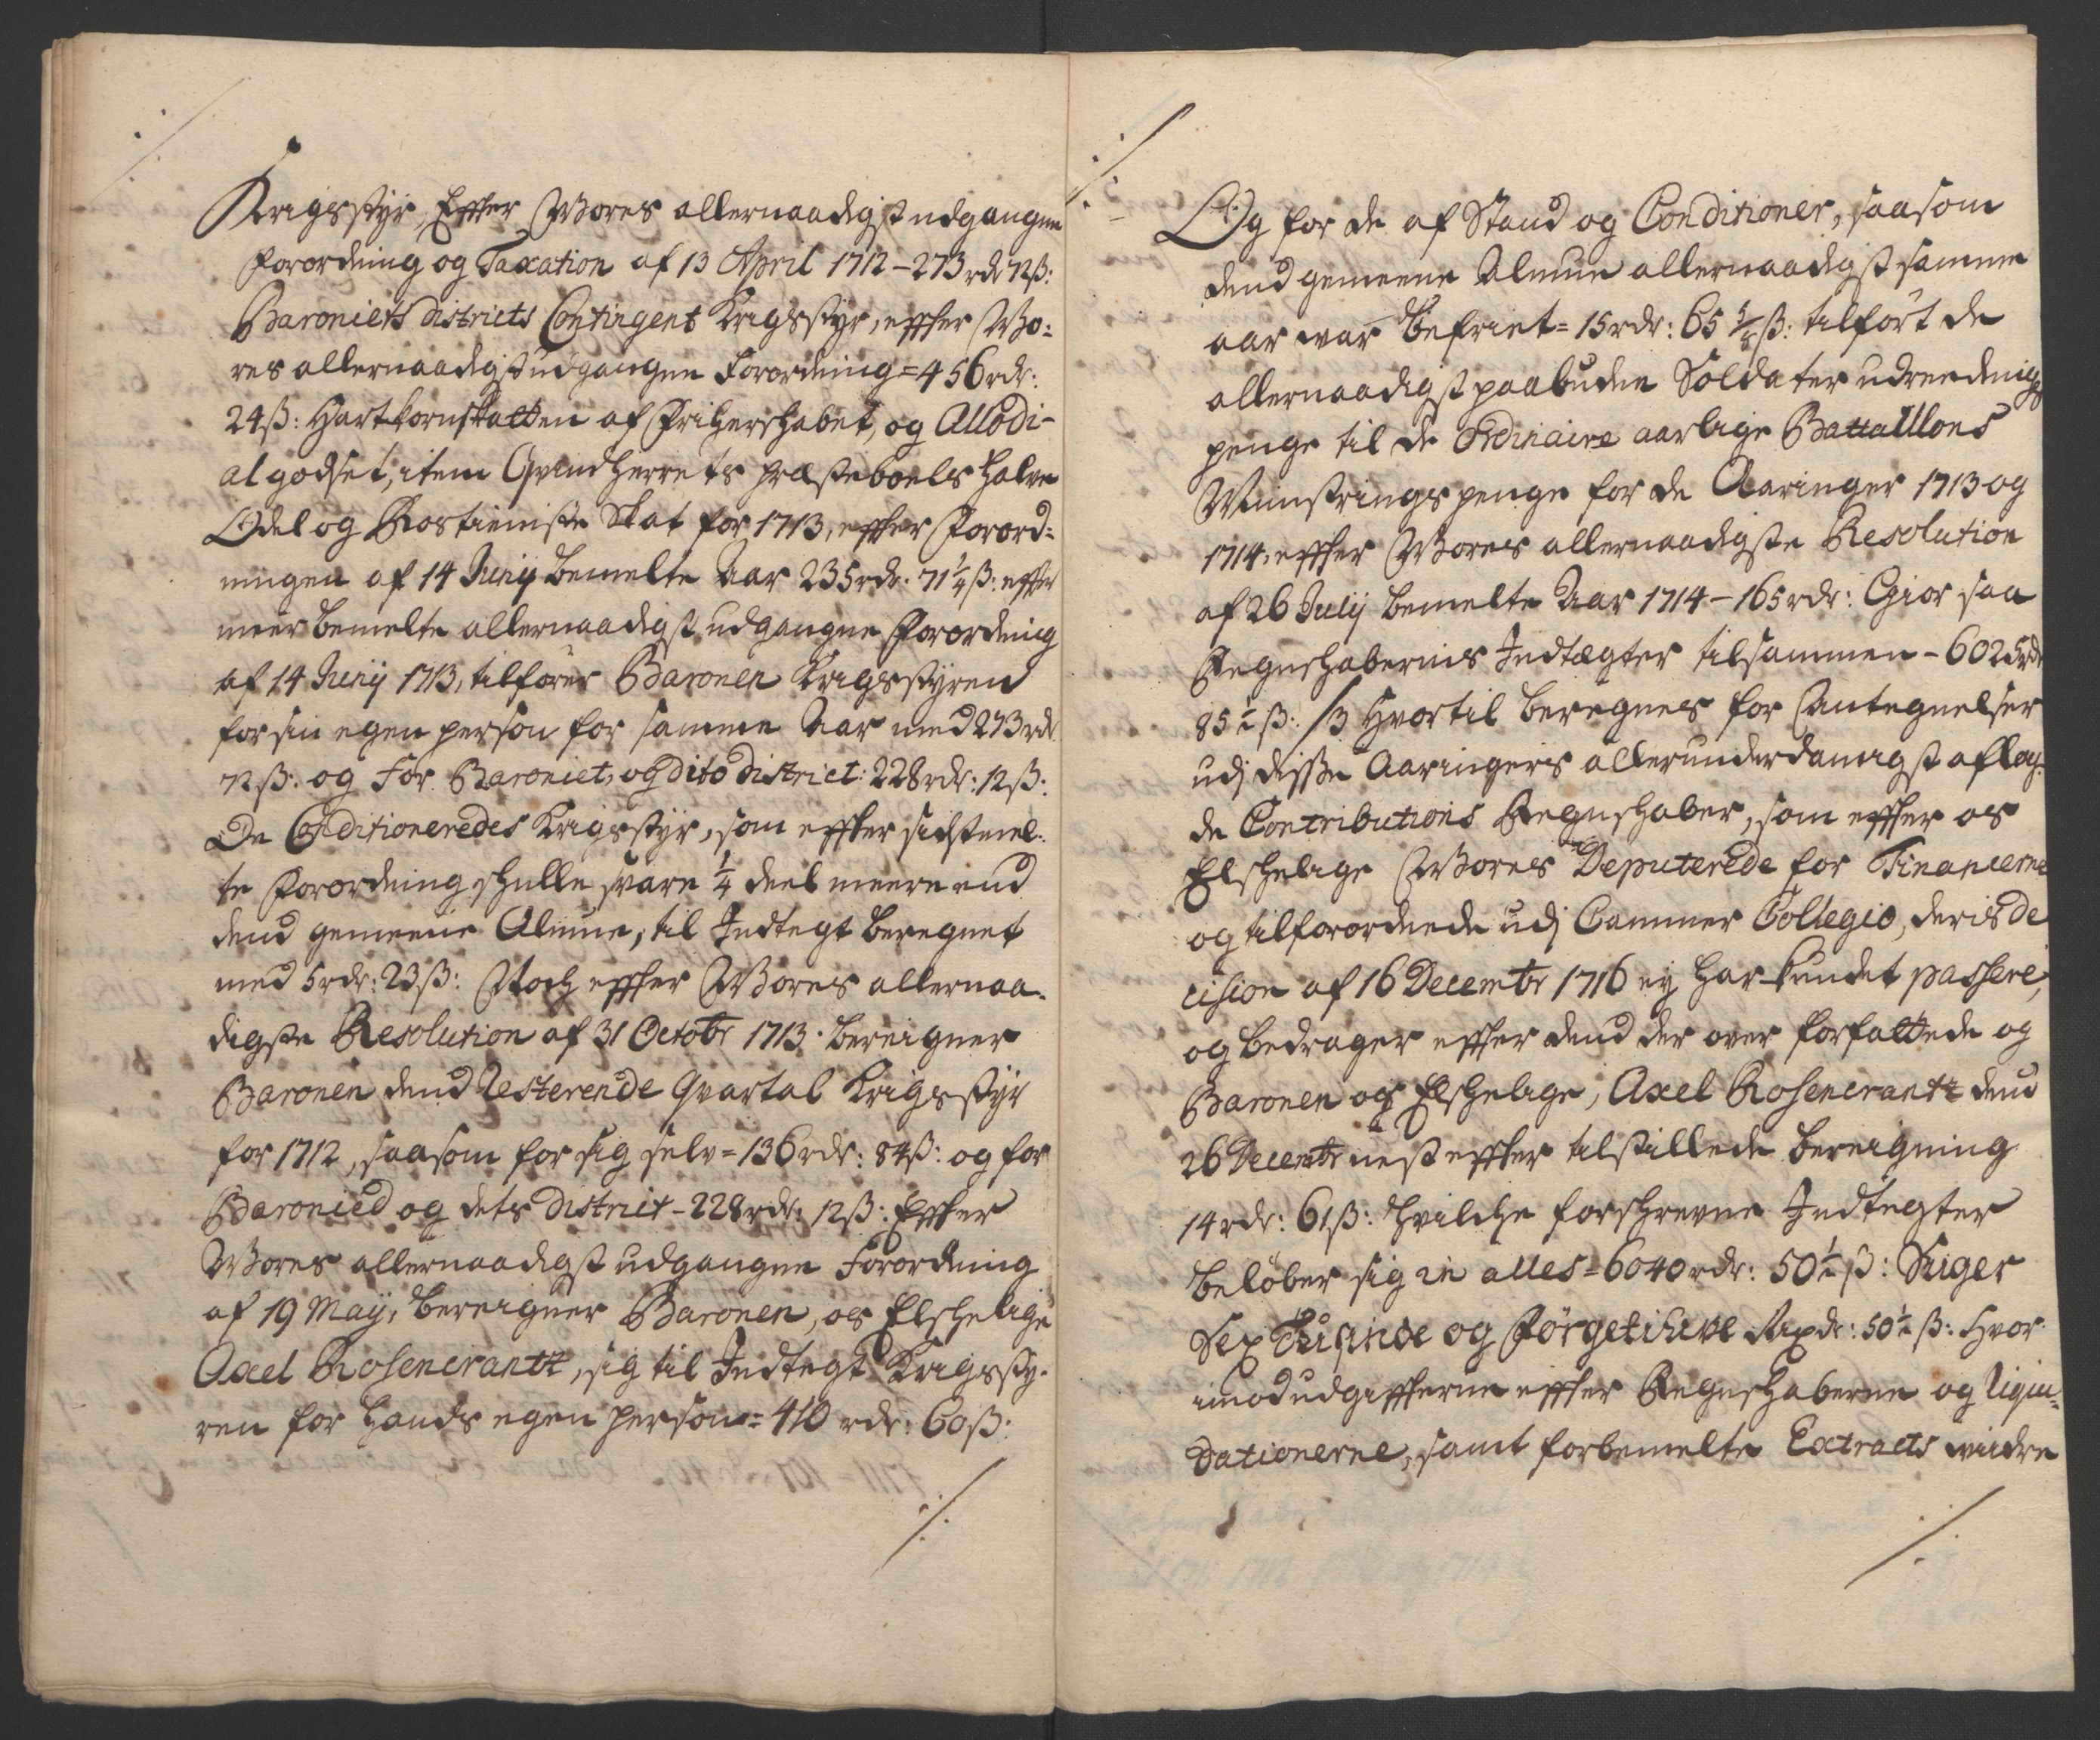 Krigsstÿr, Effter Wores allernaadigst udgangne
forordning og Taxation af 13 April 1712 – 273 rdr 72 ß:
Baroniets districts Contingent Krigsstÿr, effter Wo:
res allernaadigst udgangne forordning = 456 rdr:
24 ß: Hartkornskatten af Friherschabet, og Allodi-
al godset, item Qvindherrets præsteboels halve
Odel og Rostieniste Skat for 1713, effter Forord:
ningen af 14 Junij bemelte Aar 235 rdr. 71 1/4 ß: effter
meer bemelte allernaadigst udgangne Forordning
af 14 Junij 1713, tilfører Baronen Krigsstÿren
for sin egen person for samme Aar med 273 rdr
72 ß: og for Baroniet, og dito district: 228 rdr: 12 ß:
De Conditioneredes Krigsstÿr, som effter sidstmel-
te Forordning schulle svare 1/4 deel meere end
dend gemeene Almue, til Indtegt beregnet
med 5 rdr: 23 ß: Noch effter Wores allernaa-
digste Resolution af 31 Octobr 1713. bereigner
Baronen dend resterende Qvartal Krigsstÿr
for 1712, saasom for sig selv = 136 rdr: 84 ß: og for
Baronied og dets district – 228 rdr: 12 ß: Effter
Wores allernaadigst udgangne Forordning
af 19 Maÿ, bereigner Baronen, os Elschelige
Axel Rosencrantz, sig til Indtegt Krigsstÿ-
ren for hands egen person = 410 rdr: 60 ß:
Og for de af Stand og Conditioner, saasom
dend gemeene Almue allernaadigst samme
aar war befriet = 15 rdr: 65 5/8 ß: tilført de
allernaadigst paabudne Soldater udreednings
penge til de Ordinaire aarlige Battallions
Mynstringspenge for de Aaringer 1713 og
1714, effter Wores allernaadigste Resolution
af 26 Julij bemelte Aar 1714 – 165 rdr: Giør saa
Regnschabernis Indtægter tilsammen – 6025 rdr
85 1/2 ß: /3 Hvortil beregnes for Antegnelser
udj disse Aaringers allerunderdanigst aflag-
de Contributions Regnschaber, som effter os
Elschelige Wores Deputerede for Financerne
og tilforordnede udj Cammer Collegio, deris de
cision af 16 Decembr 1716 ey har kundet passere,
og bedrager effter dend der over forfattede og
Baronen os Elschelige, Axel Rosencrantz dend
26 Decembr nest effter tilstillede bereigning
14 rdr: 61 ß: Hvilche forschrevne Indtegter
beløber sig in alles = 6040 rdr: 50 1/2 ß: Siger
Sex Tusinde og Førgetiuve Rixdr: 50 1/2 ß: Hvor
imod udgiffterne effter Regnschaberne og liqui-
dationerne, samt forbemelte Extracts widre